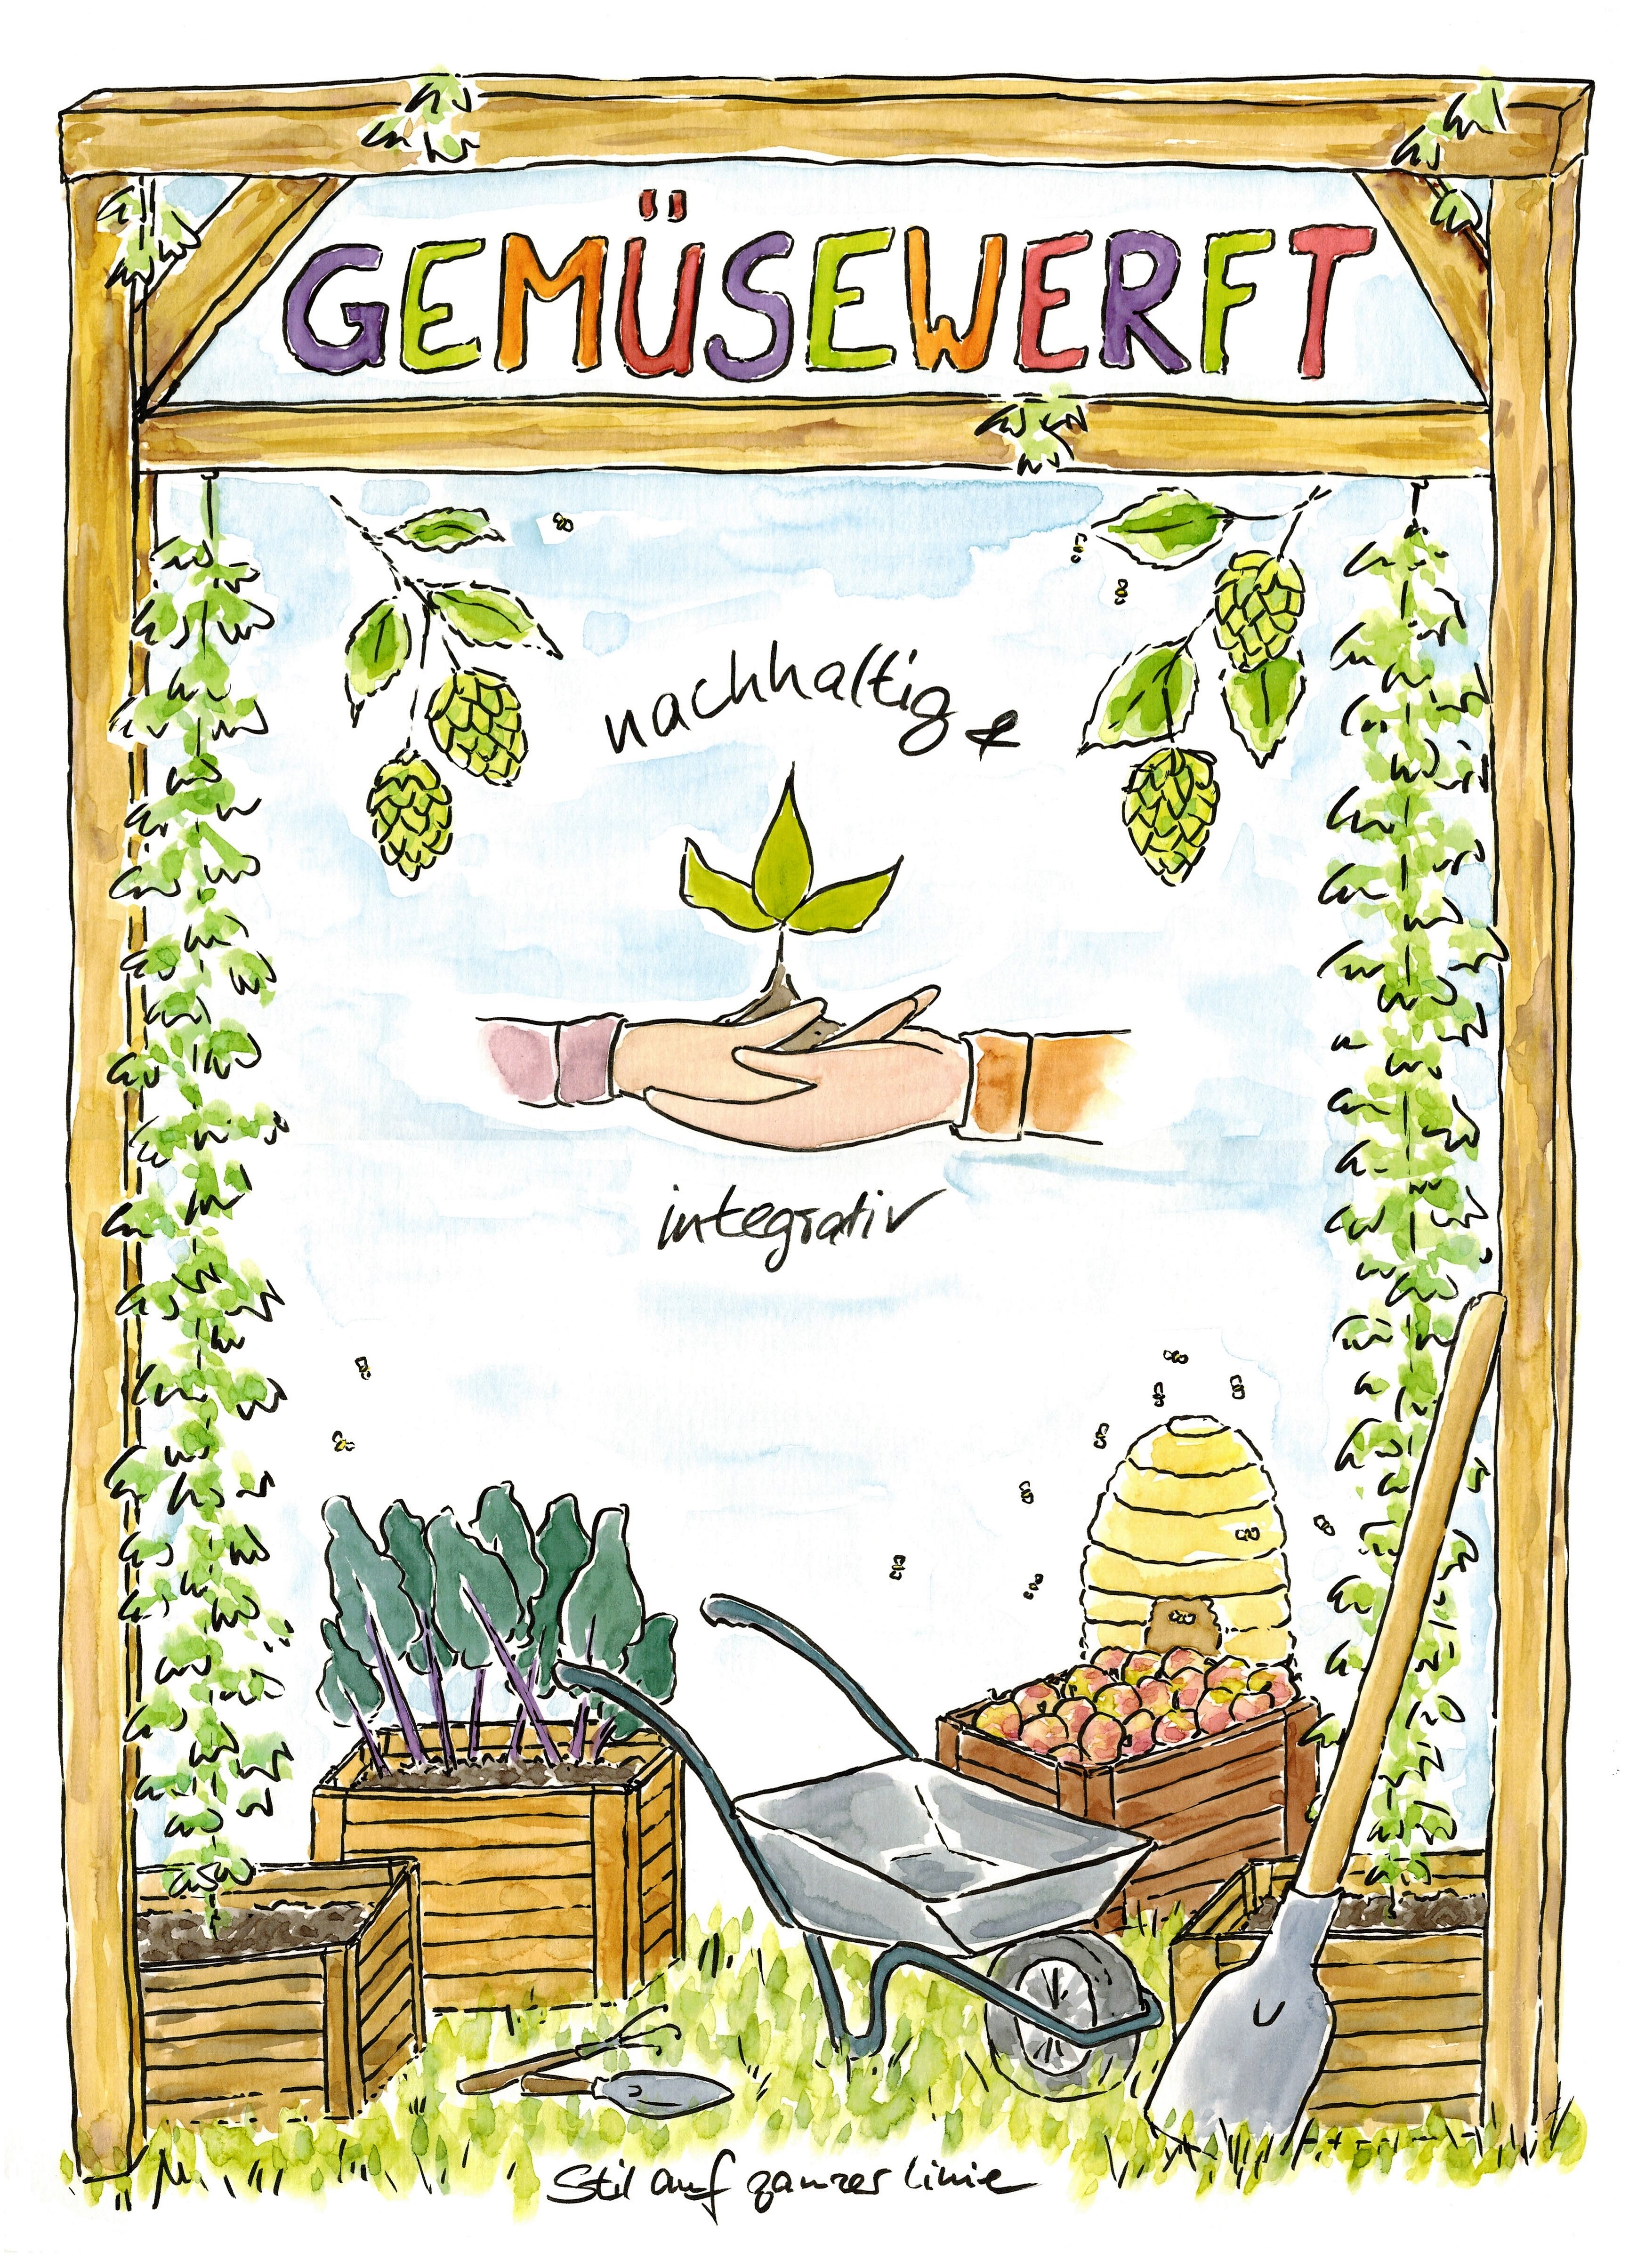 GEMÜSEWERFT
nachhaltig &
integrativ
Stil auf ganzer Linie